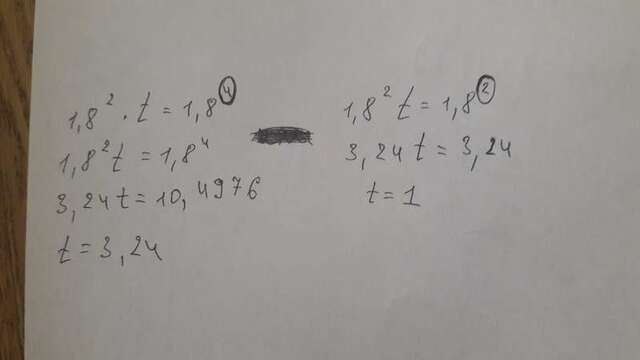 1,8² · t = 1,8⁴
1,8²t = 1,8⁴
3,24t = 10,4976
t = 3,24
1,8²t = 1,8²
3,24t = 3,24
t = 1